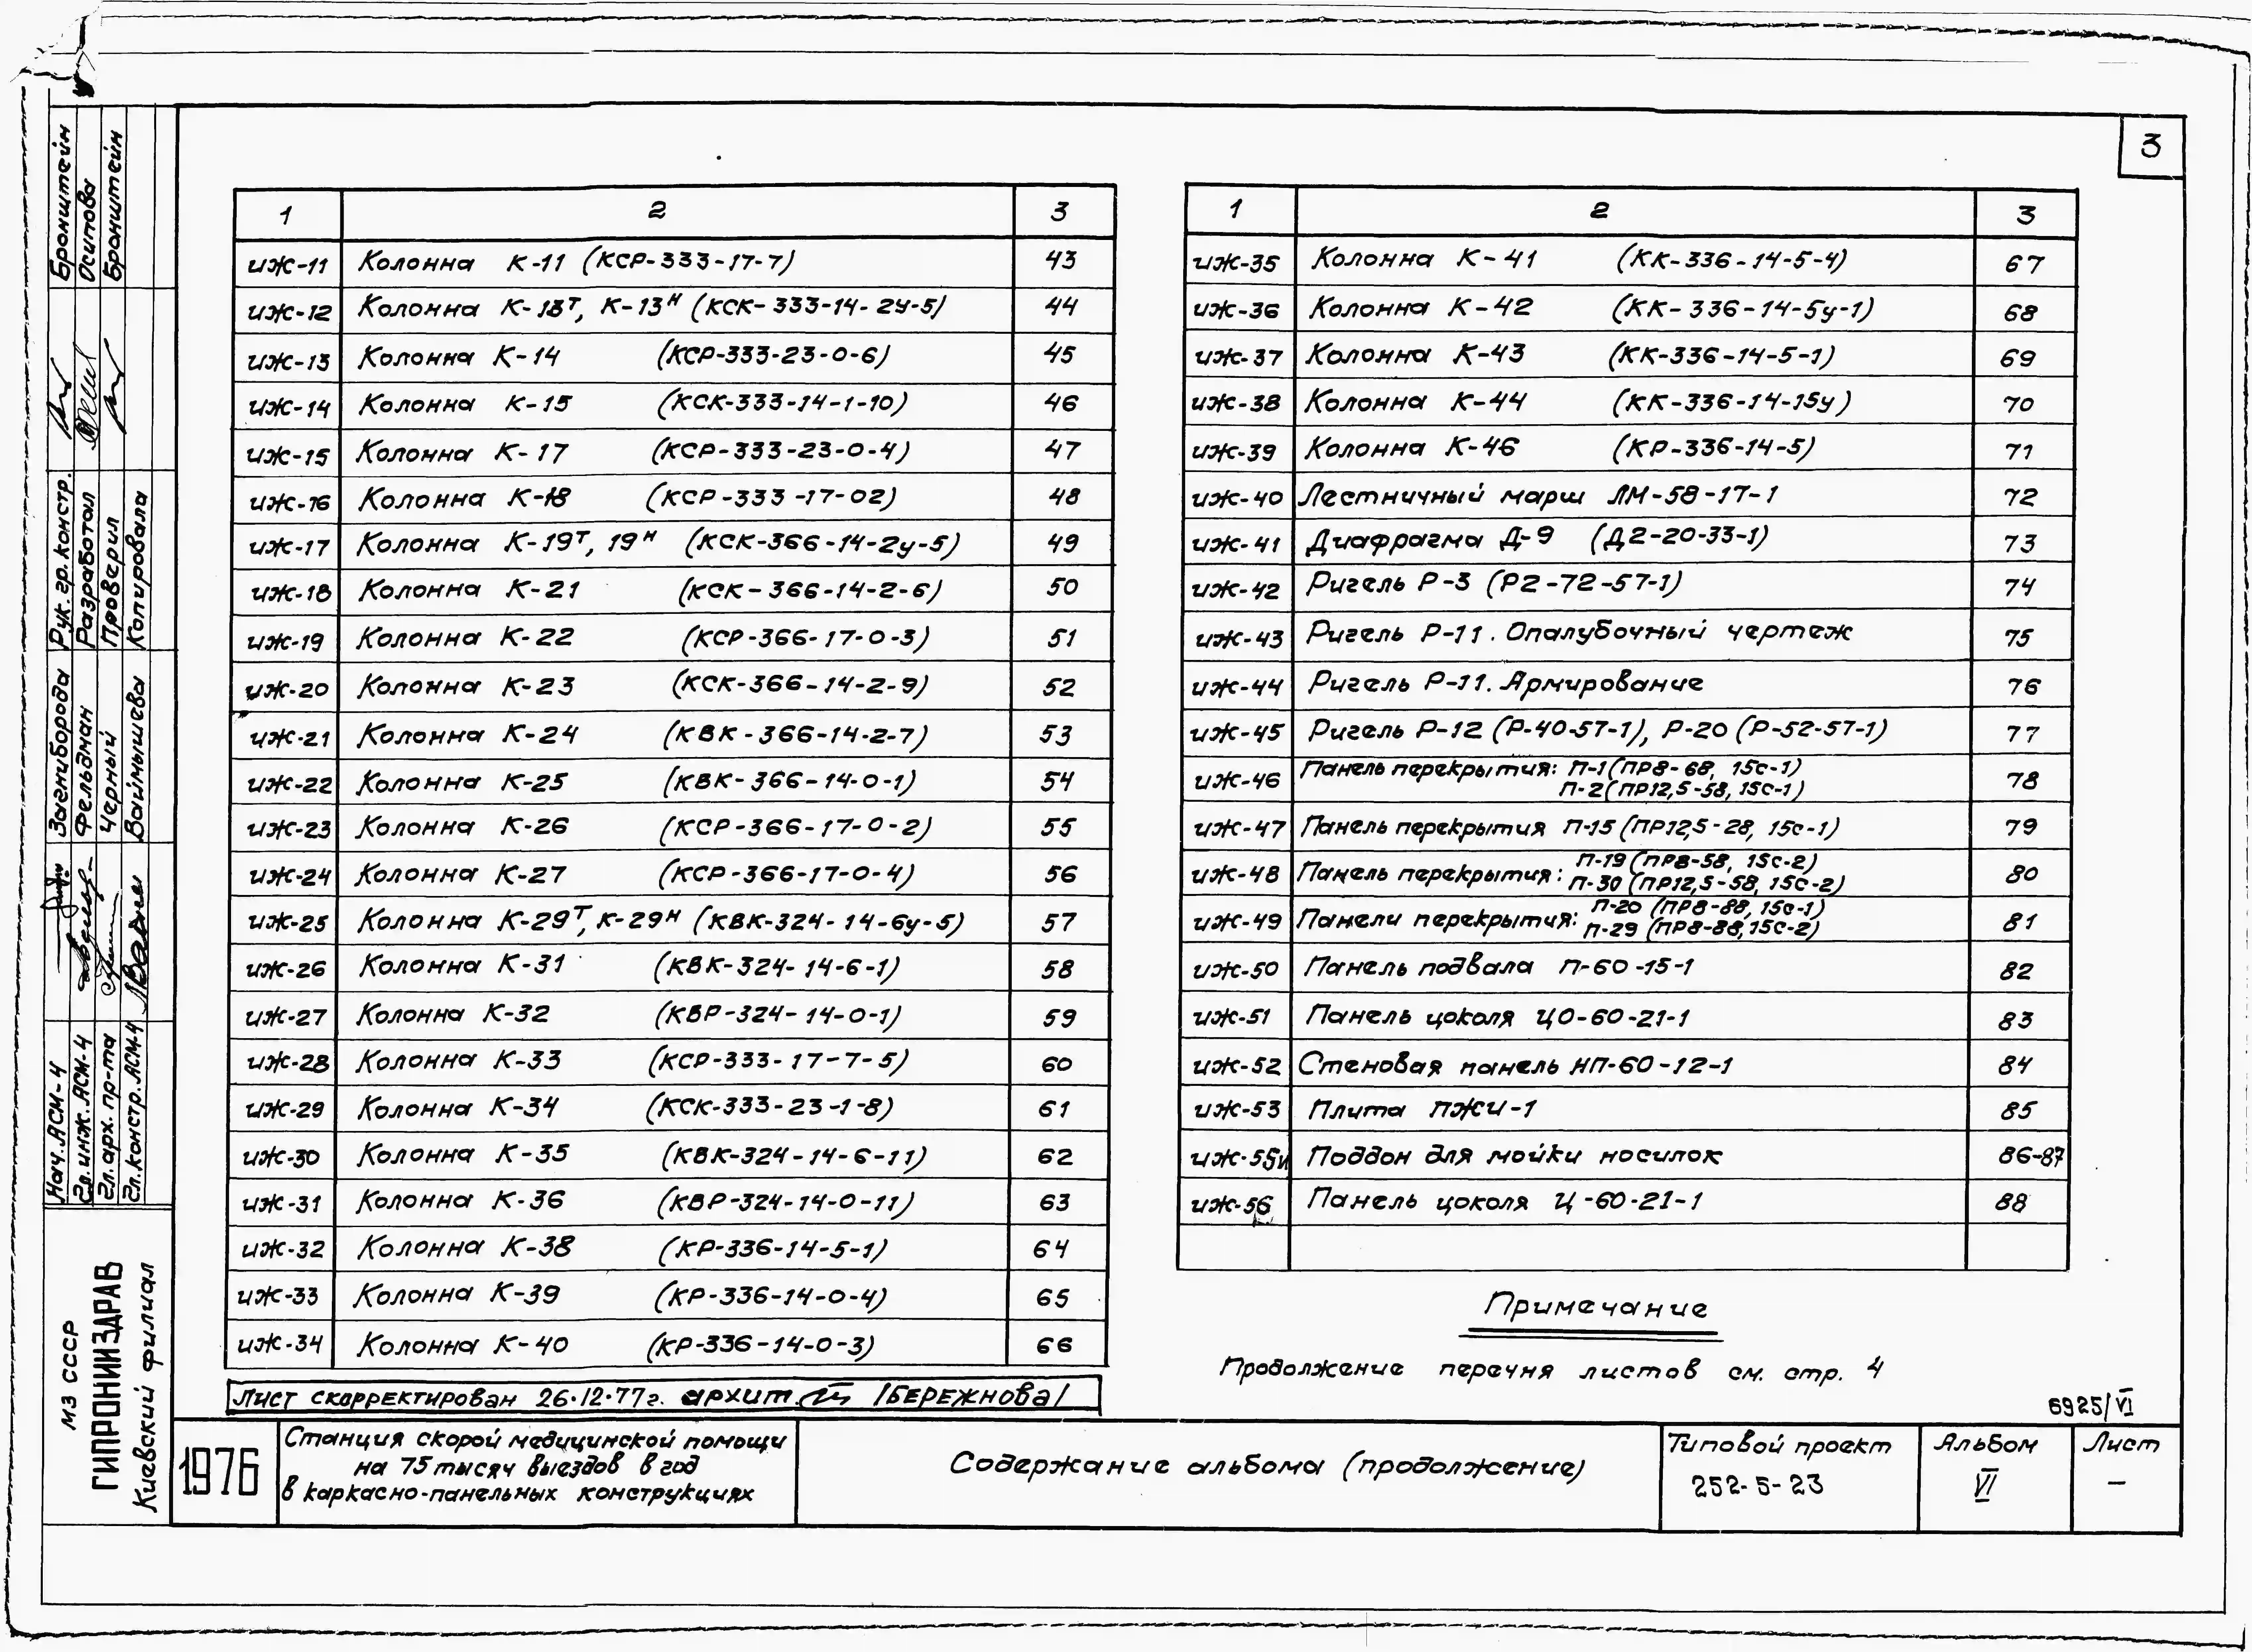 3
1 2 3
иж-11 Колонна К-11 (КСР-333-17-7) 43
иж-12 Колонна К-13т, К-13н (КСК-333-14-2у-5) 44
иж-13 Колонна К-14 (КСР-333-23-0-6) 45
иж-14 Колонна К-15 (КСК-333-14-1-10) 46
иж-15 Колонна К-17 (КСР-333-23-0-4) 47
иж-16 Колонна К-18 (КСР-333-17-02) 48
иж-17 Колонна К-19т, 19н (КСК-366-14-2у-5) 49
иж-18 Колонна К-21 (КСК-366-14-2-6) 50
иж-19 Колонна К-22 (КСР-366-17-0-3) 51
иж-20 Колонна К-23 (КСК-366-14-2-9) 52
иж-21 Колонна К-24 (КВК-366-14-2-7) 53
иж-22 Колонна К-25 (КВК-366-14-0-1) 54
иж-23 Колонна К-26 (КСР-366-17-0-2) 55
иж-24 Колонна К-27 (КСР-366-17-0-4) 56
иж-25 Колонна К-29т, К-29н (КВК-324-14-6у-5) 57
иж-26 Колонна К-31 (КВК-324-14-6-1) 58
иж-27 Колонна К-32 (КВР-324-14-0-1) 59
иж-28 Колонна К-33 (КСР-333-17-7-5) 60
иж-29 Колонна К-34 (КСК-333-23-1-8) 61
иж-30 Колонна К-35 (КВК-324-14-6-11) 62
иж-31 Колонна К-36 (КВР-324-14-0-11) 63
иж-32 Колонна К-38 (КР-336-14-5-1) 64
иж-33 Колонна К-39 (КР-336-14-0-4) 65
иж-34 Колонна К-40 (КР-336-14-0-3) 66
Лист скорректирован 26.12.77г. архит. /БЕРЕЖНОВА/
1 2 3
иж-35 Колонна К-41 (КК-336-14-5-4) 67
иж-36 Колонна К-42 (КК-336-14-5у-1) 68
иж-37 Колонна К-43 (КК-336-14-5-1) 69
иж-38 Колонна К-44 (КК-336-14-15у) 70
иж-39 Колонна К-46 (КР-336-14-5) 71
иж-40 Лестничный марш ЛМ-58-17-1 72
иж-41 Диафрагма Д-9 (Д2-20-33-1) 73
иж-42 Ригель Р-3 (Р2-72-57-1) 74
иж-43 Ригель Р-11. Опалубочный чертеж 75
иж-44 Ригель Р-11. Армирование 76
иж-45 Ригель Р-12 (Р-40-57-1), Р-20 (Р-52-57-1) 77
иж-46 Панель перекрытия: П-1 (ПР8-68, 15с-1) 78
П-2 (ПР12,5-58, 15с-1)
иж-47 Панель перекрытия П-15 (ПР12,5-28, 15с-1) 79
П-19 (ПР8-58, 15с-2)
иж-48 Панель перекрытия: П-30 (ПР12,5-58, 15с-2) 80
П-20 (ПР8-88, 15с-1)
иж-49 Панели перекрытия: П-29 (ПР8-88, 15с-2) 81
иж-50 Панель подвала П-60-15-1 82
иж-51 Панель цоколя ЦО-60-21-1 83
иж-52 Стеновая панель НП-60-12-1 84
иж-53 Плита ПЖИ-1 85
иж-55и Поддон для мойки носилок 86-87
иж-56 Панель цоколя Ц-60-21-1 88
Примечание
Продолжение перечня листов см. стр. 4
6925/VI
1976
Станция скорой медицинской помощи
на 75 тысяч выездов в год
в каркасно-панельных конструкциях
Содержание альбома (продолжение)
Типовой проект
252-5-23
Альбом
VI
Лист
—
МЗ СССР
ГИПРОНИИЗДРАВ
Киевский филиал
Нач. АСМ-4 Загниборода Рук. гр. констр. Бронштейн
Гл. инж. АСМ-4 Фельдман Разработал Осипова
Гл. арх. пр-та Черный Проверил Бронштейн
Гл. констр. АСМ-4 Ваймышева Копировала